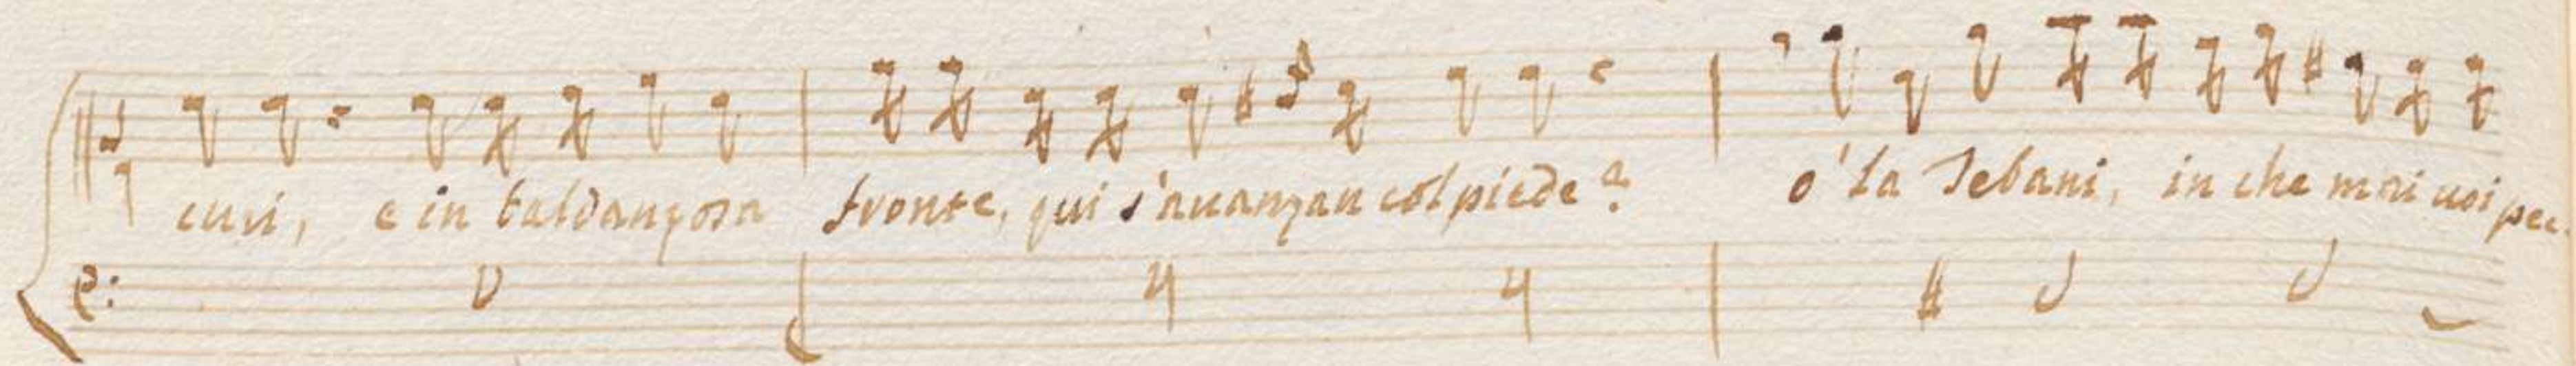 curi, e in baldanzosa fronte, qui s'auanzan col piede? o' la Tebani, in che mai uoi pec.